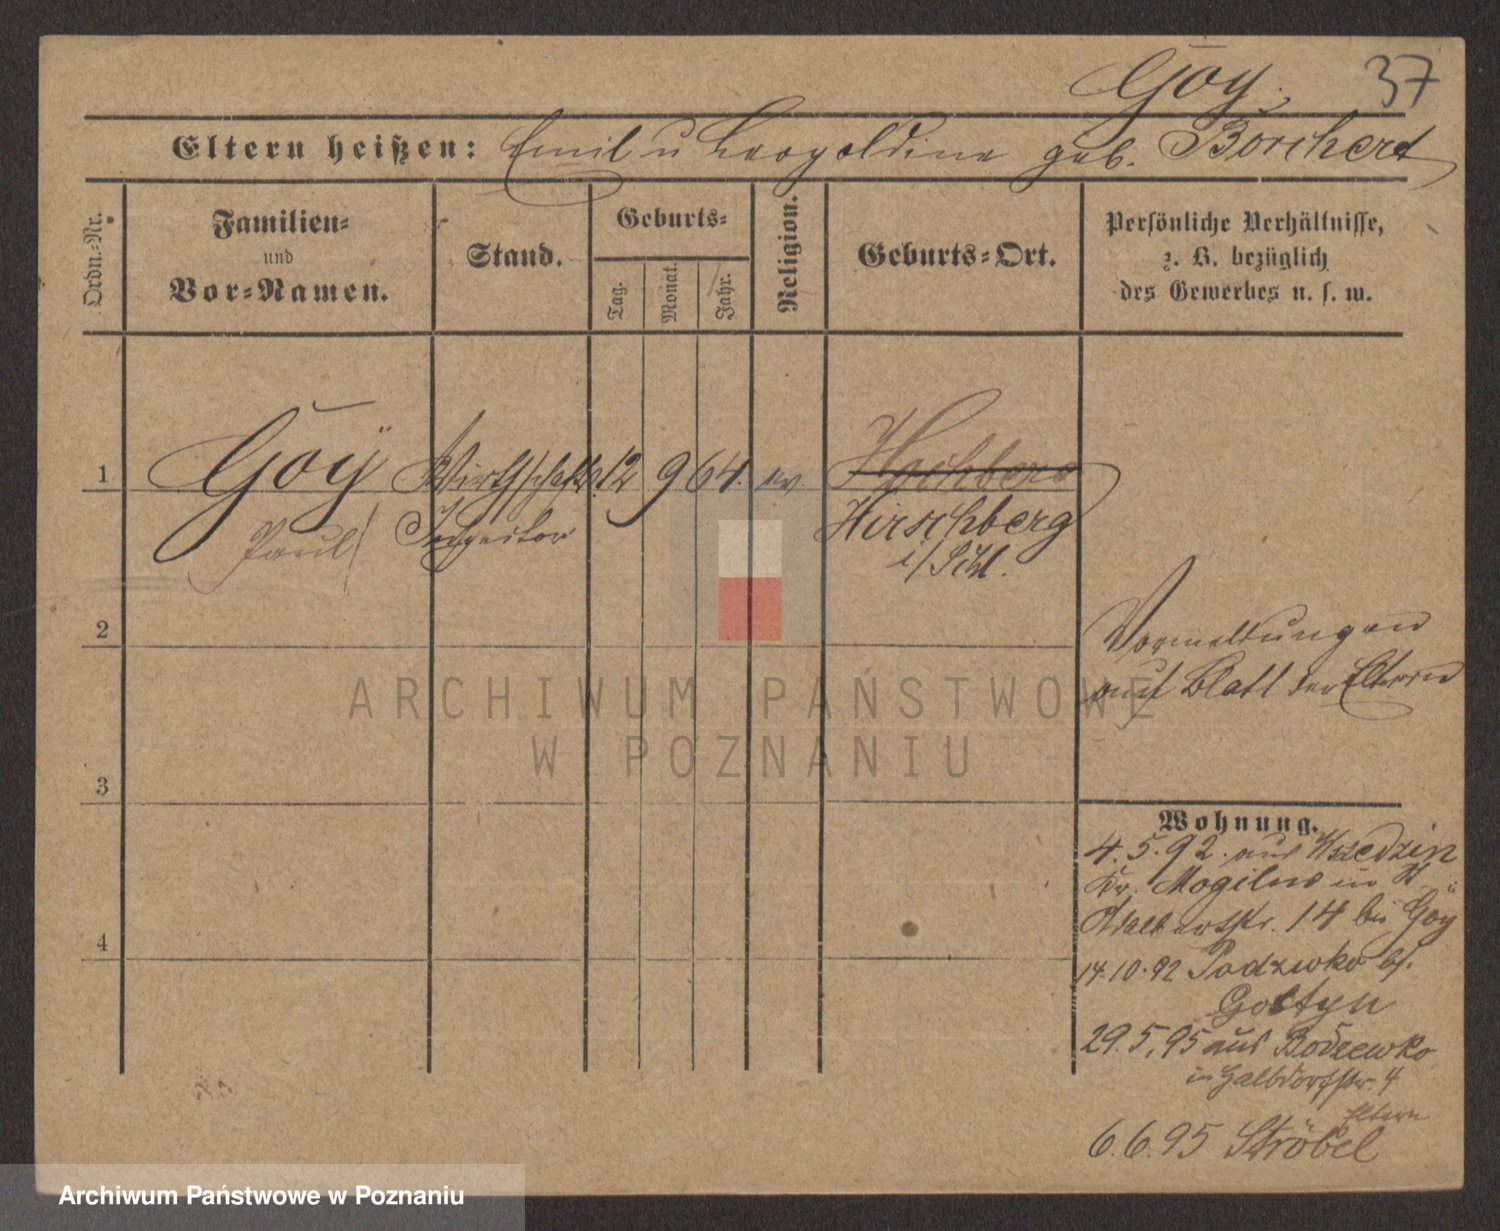 Goy. 37
Eltern heißen: Emil u Leopoldine geb. Borchert
Ordn.-Nr.
Familien-
und
Vor-Namen.
Stand.
Geburts-
Tag.
Monat.
Jahr.
Religion.
Geburts-Ort.
Persönliche Verhältnisse,
z. B. bezüglich
des Gewerbes u. s. w.
1 Goÿ Wirthschafts 12 9 64. ev.
Paul Inspector Hirschberg
i/Schl.
2
Vormeldungen
auf Blatt der Eltern
ARCHIWUM PAŃSTWOWE
W POZNANIU
3
Wohnung.
4.5.92. aus Wszedzin
Kr. Mogilno in
Adalbertstr. 14 bei Goy
4
14.10.92 b/.
Gostyn
29.5.95 aus Bodzewko
in Halbdorfstr. 4
Eltern
6.6.95 Ströbel
Archiwum Państwowe w Poznaniu